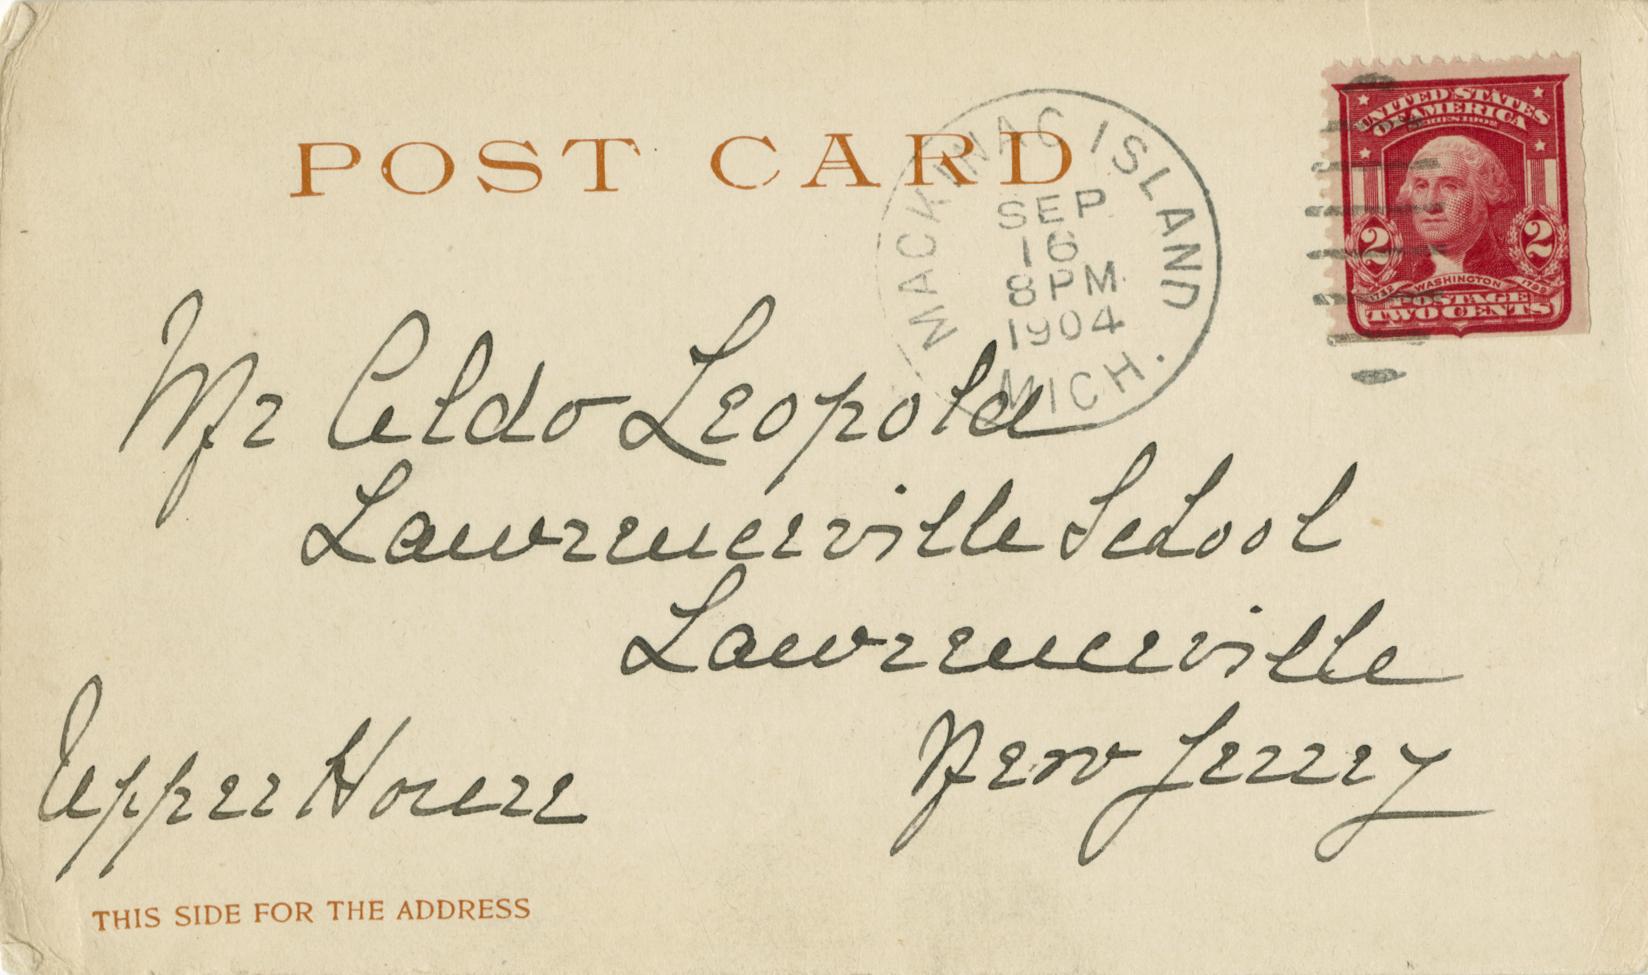 POST CARD
MACKINAC ISLAND
SEP
16
8 PM
1904
MICH.
UNITED STATES
OF AMERICA
SERIES 1902
2 2
1732 WASHINGTON 1799
POSTAGE
TWO CENTS
Mr Aldo Leopold
Lawrenceville School
Lawrenceville
New Jersey
Upper House
THIS SIDE FOR THE ADDRESS